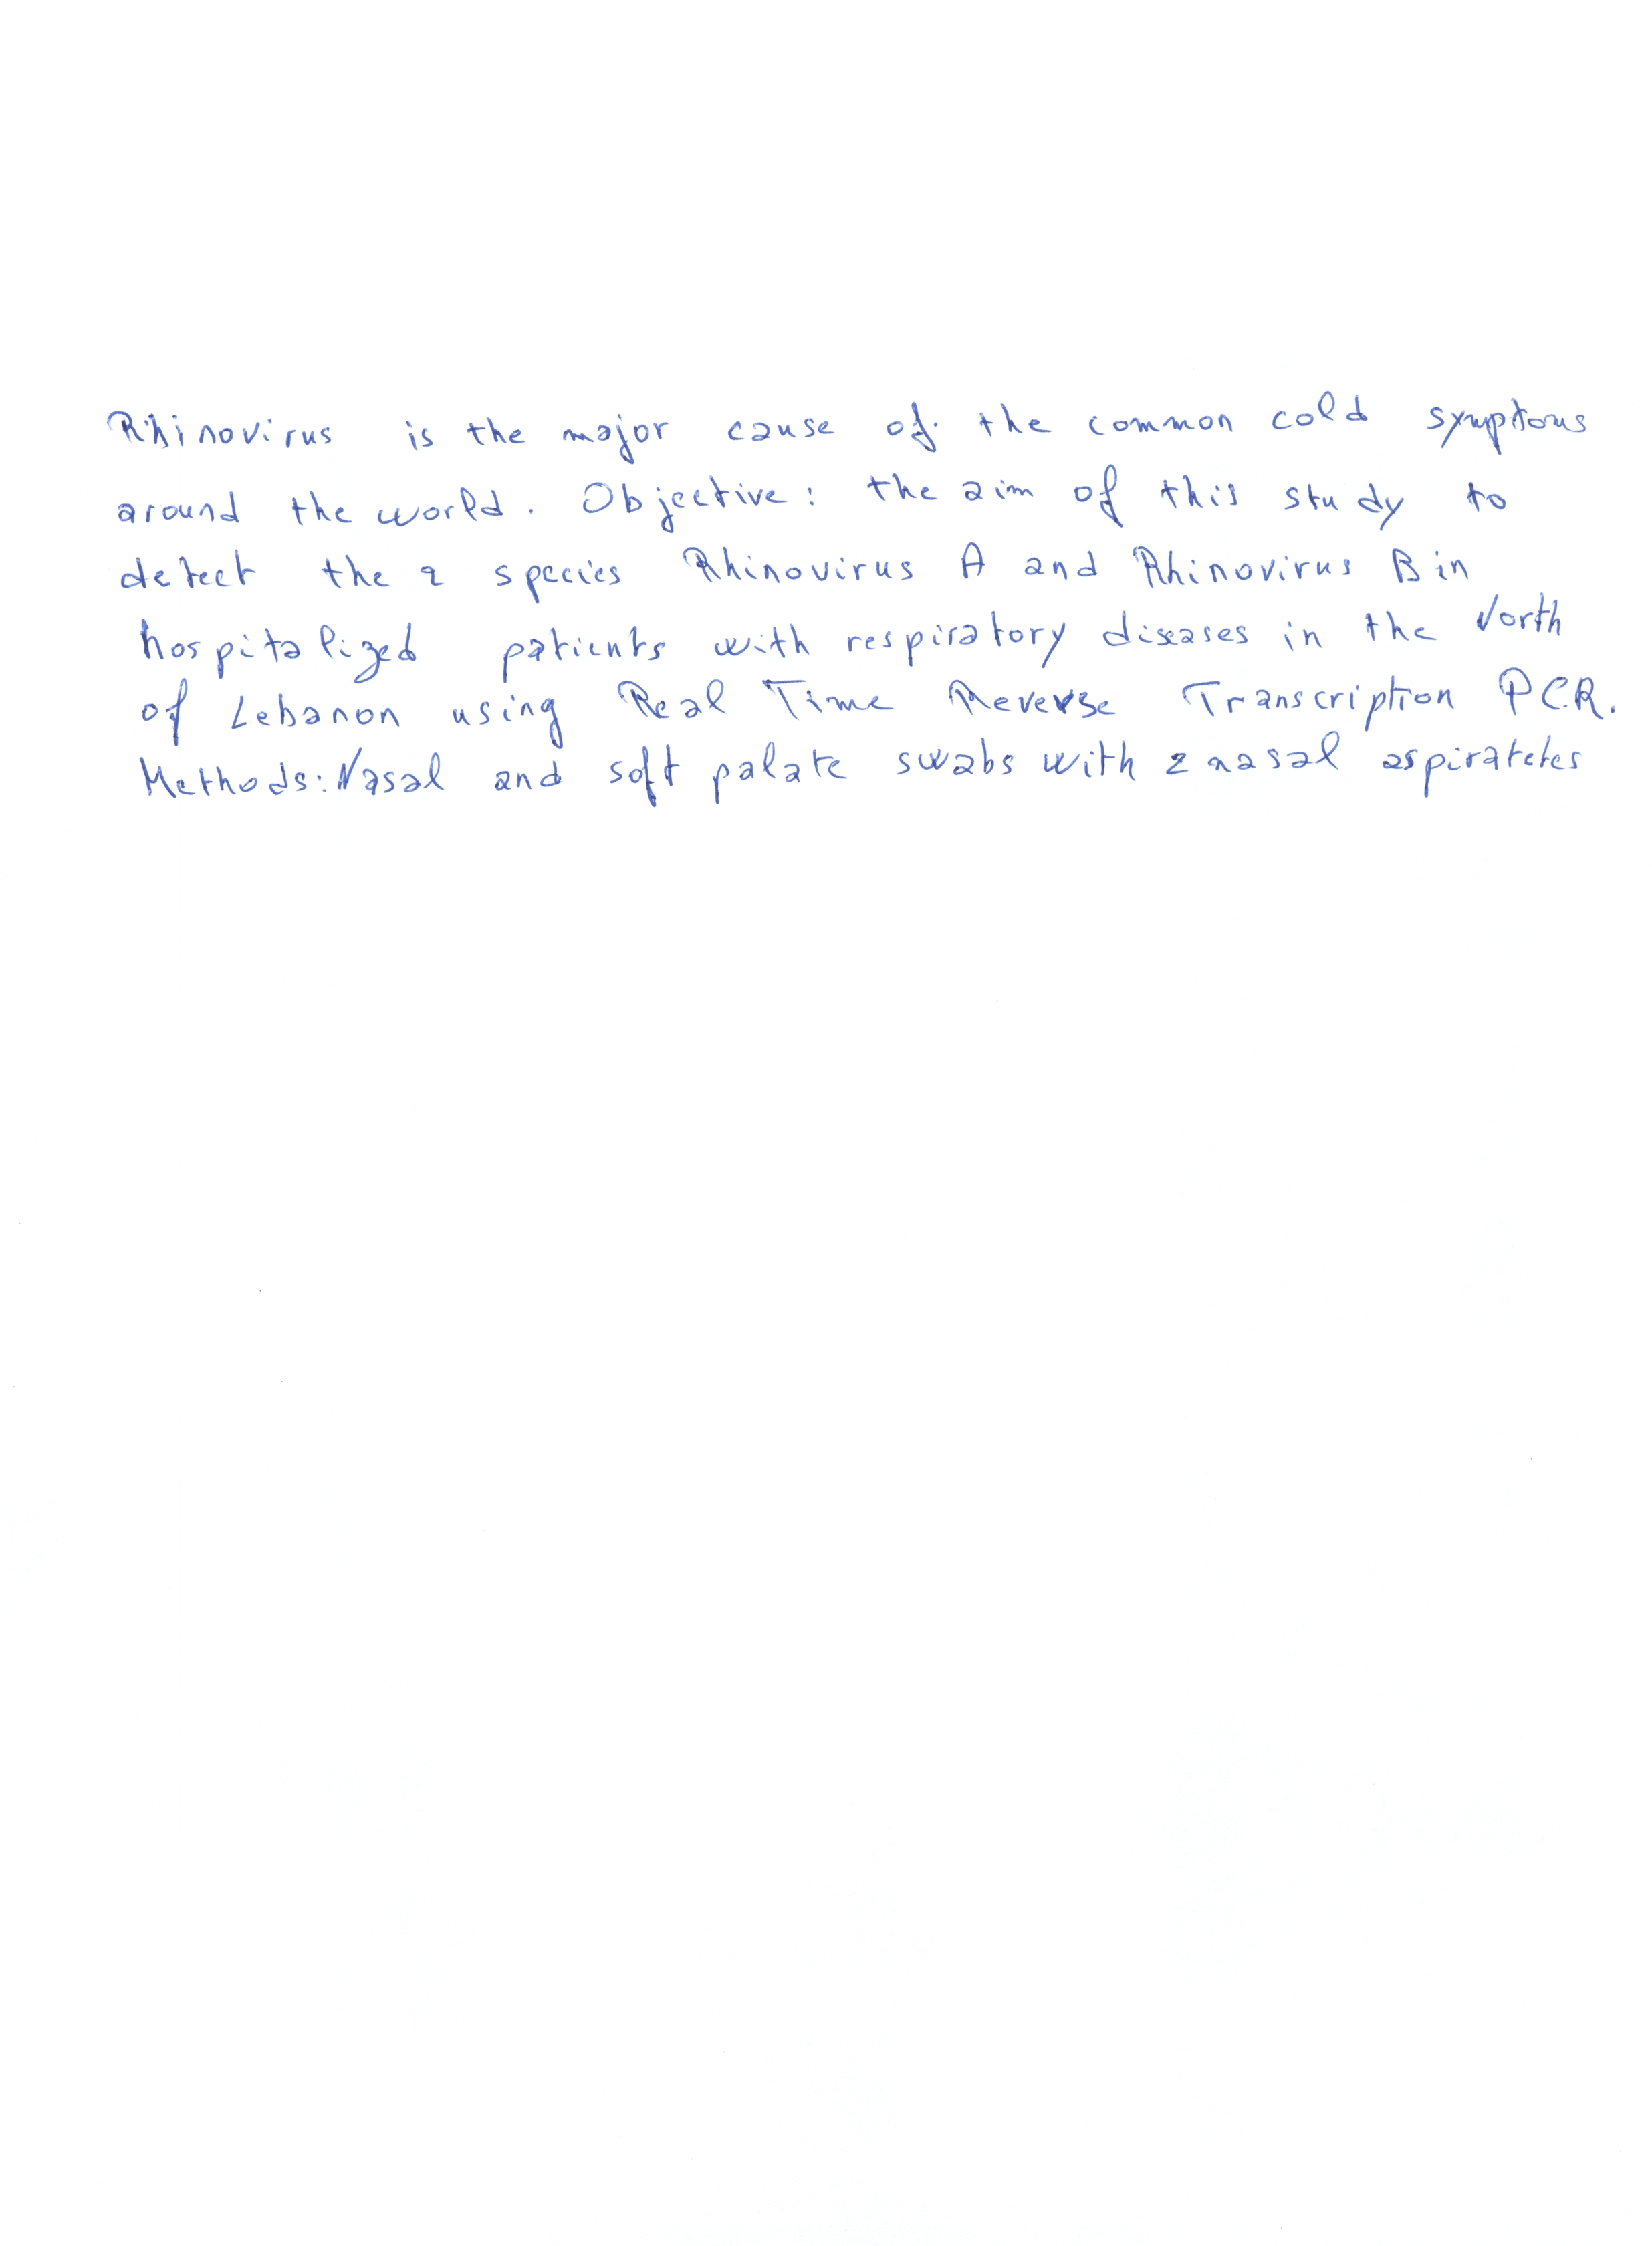 Rhinovirus is the major cause of the common cold symptoms
around the world. Objective: the aim of this study to
detect the 2 species Rhinovirus A and Rhinovirus B in
hospitalized patients with respiratory diseases in the North
of Lebanon using Real Time Reverse Transcription PCR.
Methods: Nasal and soft palate swabs with 2 nasal aspiratetes